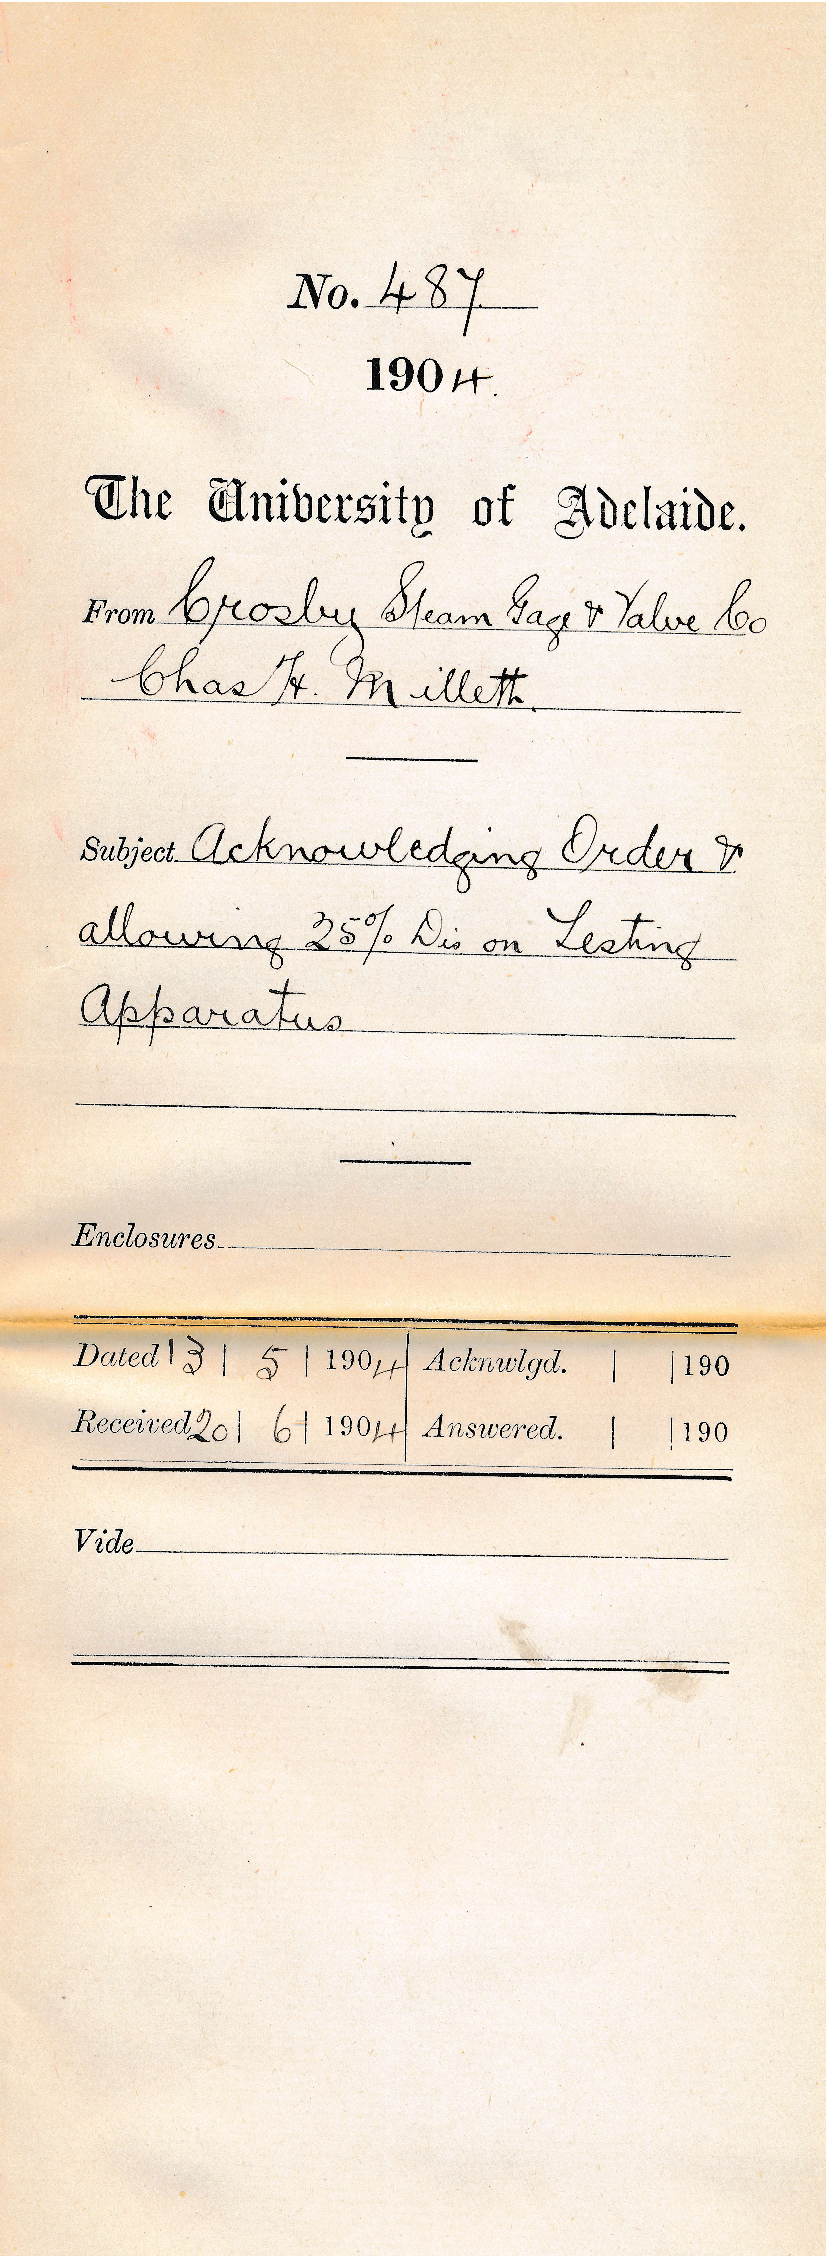 No. 487
1904.
The University of Adelaide.
From Crosby Steam Gage & Valve Co
Chas H. Millett.
Subject Acknowledging Order &
allowing 25% Dis on Testing
Apparatus
Enclosures
Dated 13 | 5 | 1904 Acknwlgd. | | 190
Received 20 | 6 | 1904 Answered. | | 190
Vide